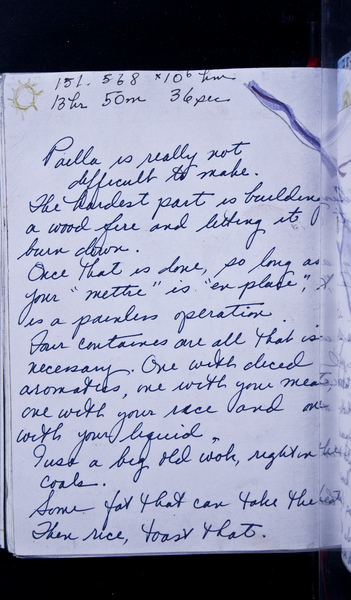 151.568 x10⁶ km
13hr 50m 36sec
Paella is really not
difficult to make.
The hardest part is building
a wood fire and letting it
burn down.
Once that is done, so long as
your "mettre" is "en place", it
is a painless operation.
Four containes are all that is
necessary. One with diced
aromatics, one with your meat,
one with your rice and one
with your liquid.
Just a big old wok, right in the
coals.
Some fat that can take the heat
Then rice, toast that.